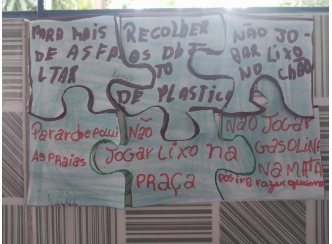 PARA MAIS
DE ASFA
LTAR
RECOLHER
OS OBJE
TO
DE PLASTICO
NÃO JO-
GAR LIXO
NO CHÃO
Parar de polui
AS PRAIAS
NÃO
JOGAR LIXO na
PRAÇA
NÃO JOGAR
GASOLINA
NA MATA